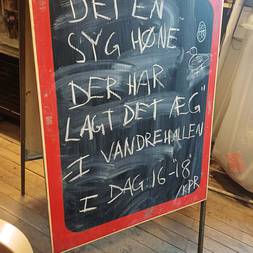 DET EN
SYG HØNE
DER HAR
LAGT DET ÆG"
=I VANDREHALLEN
I DAG 16-"18'
KPR